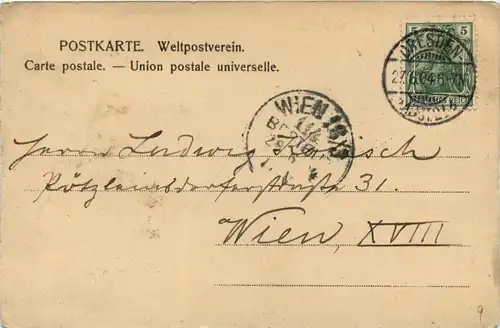 POSTKARTE. Weltpostverein.
Carte postale. — Union postale universelle.
5 5
DRESDEN
27.6.04.6-7N.
WIEN 18/1
Herrn Ludwig
Pötzleinsdorferstraße 31.
Wien, XVIII
9